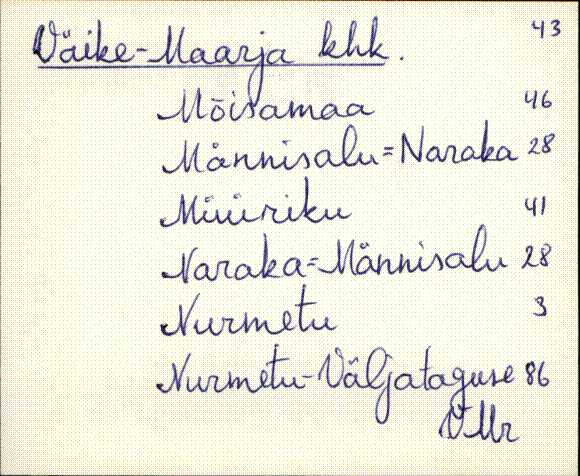 Väike-Maarja khk. 43
Mõisamaa 46
Männisalu=Naraka 28
Müüriku 41
Naraka=Männisalu 28
Nurmetu 3
Nurmetu-Väljataguse 86
VMr